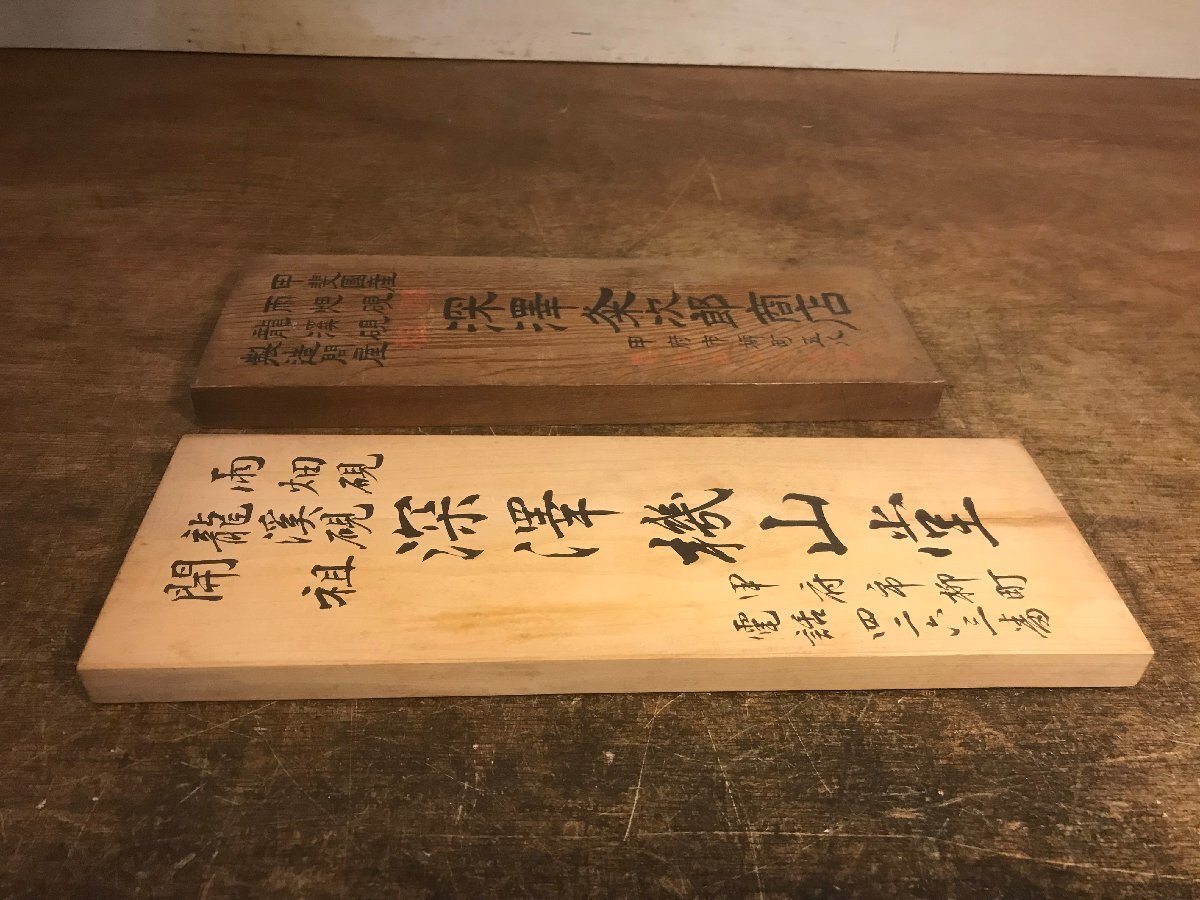 甲斐國産
雨畑硯
龍溪硯
製造問屋
深澤粂次郎商店
甲府市柳町
雨畑硯
龍溪硯
開祖
深澤機山堂
甲府市柳町
電話四二六三番